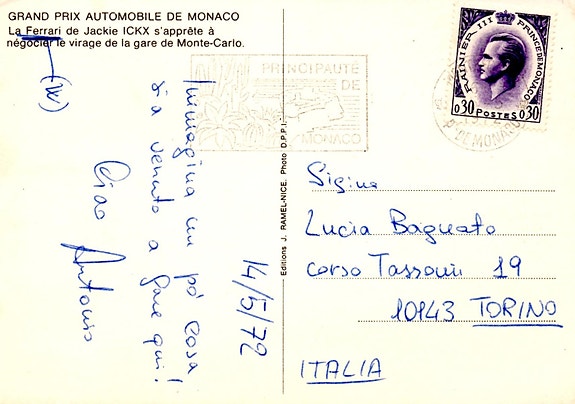 GRAND PRIX AUTOMOBILE DE MONACO
La Ferrari de Jackie ICKX s'apprête à
négocier le virage de la gare de Monte-Carlo.
(W)
Immagina un pò cosa
sia venuto a fare qui!
Ciao Antonio
14/5/72
Editions J. RAMEL-NICE. Photo D.P.P.I.
PRINCIPAUTÉ
DE
MONACO
RAINIER III PRINCE DE MONACO
0,30 POSTES 0,30
Pté DE MONACO
Sig.ina
Lucia Bagnato
corso Tassoni 19
10143 TORINO
ITALIA